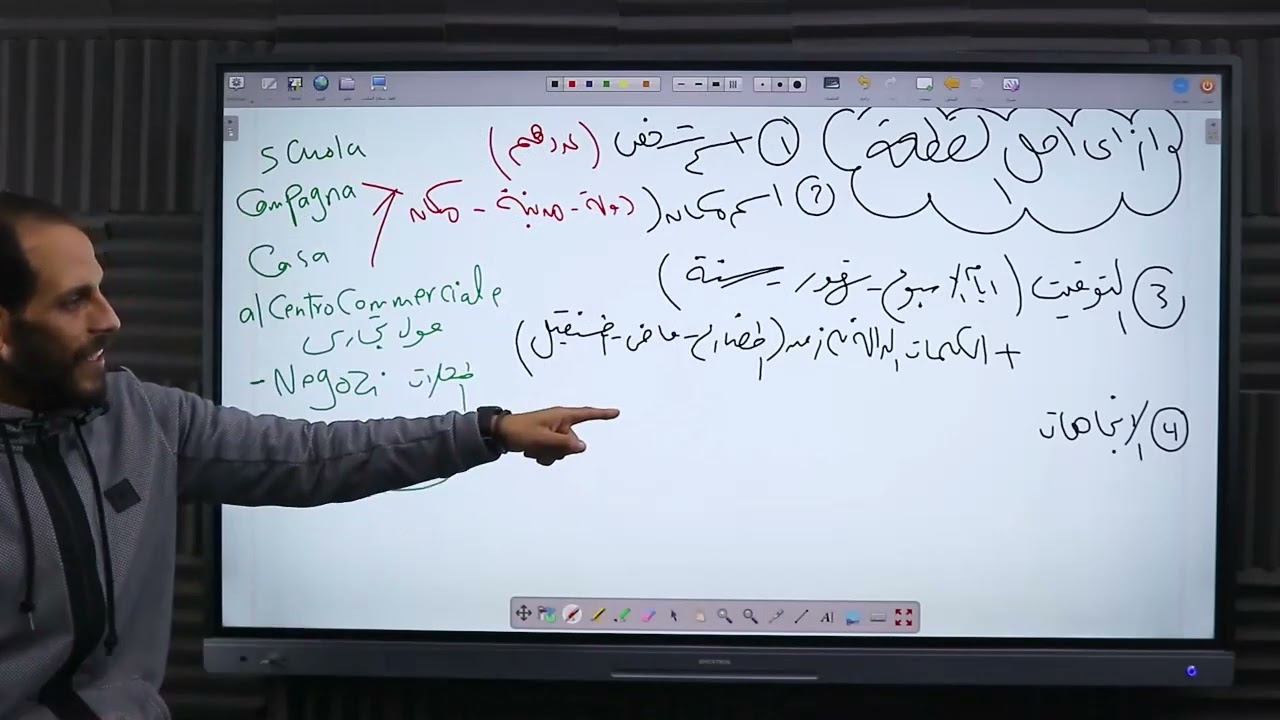 ازاى احل (قطعة)
① اسم شخص (مدرهم)
② اسم مكان (دولة - مدينة - مكان
③ التوقيت (ايام الاسبوع - شهور - سنة)
+ الكلمات الدالة زمن (المضارع - ماضى - مستقبل)
④ الاتجاهات
scuola
Campagna
Casa
al Centro Commerciale
مول تجارى
- Negozi المحلات